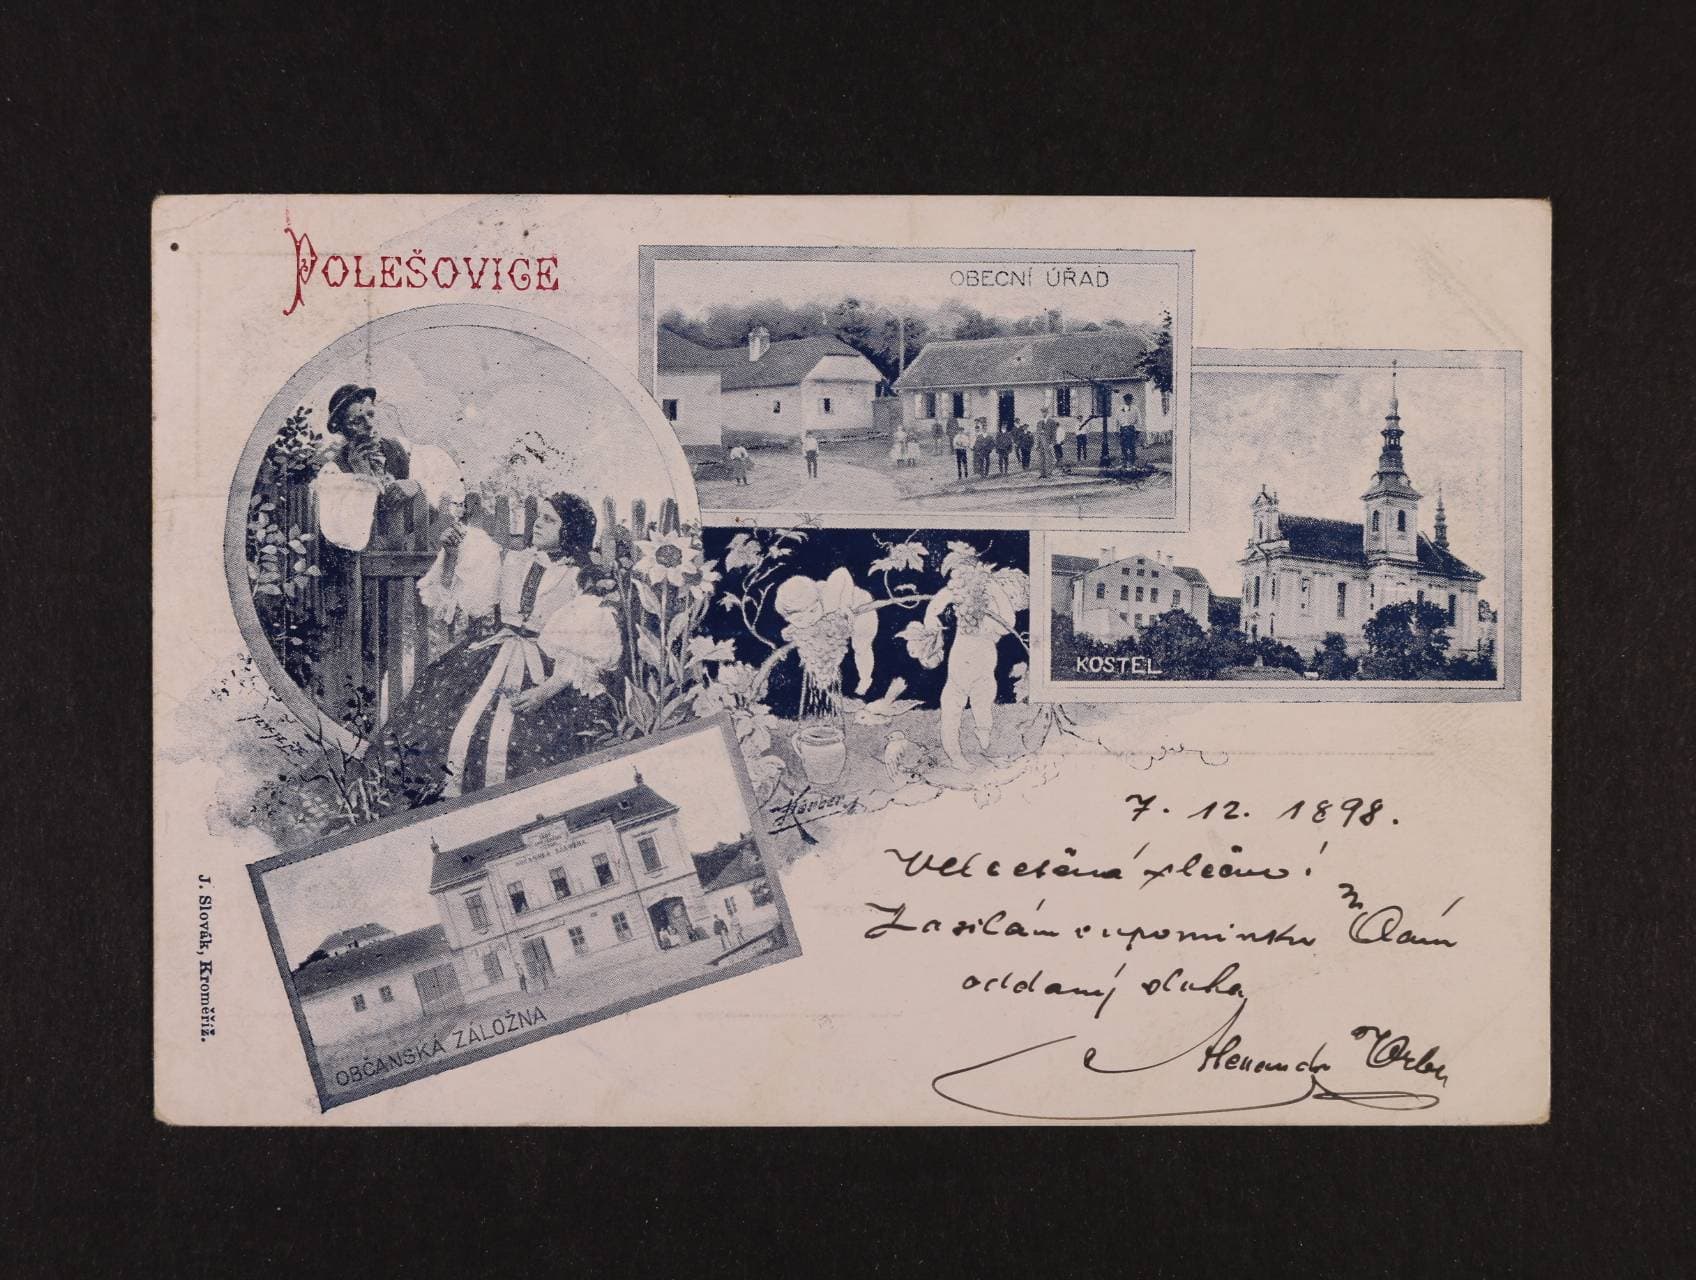 POLEŠOVICE
OBECNÍ ÚŘAD
KOSTEL
Körber
OBČANSKÁ ZÁLOŽNA
OBČANSKÁ ZÁLOŽNA
J. Slovák, Kroměříž.
7. 12. 1898.
Velectěná slečno!
Zasílám upomínku Vám
oddaný sluha
Alexandr